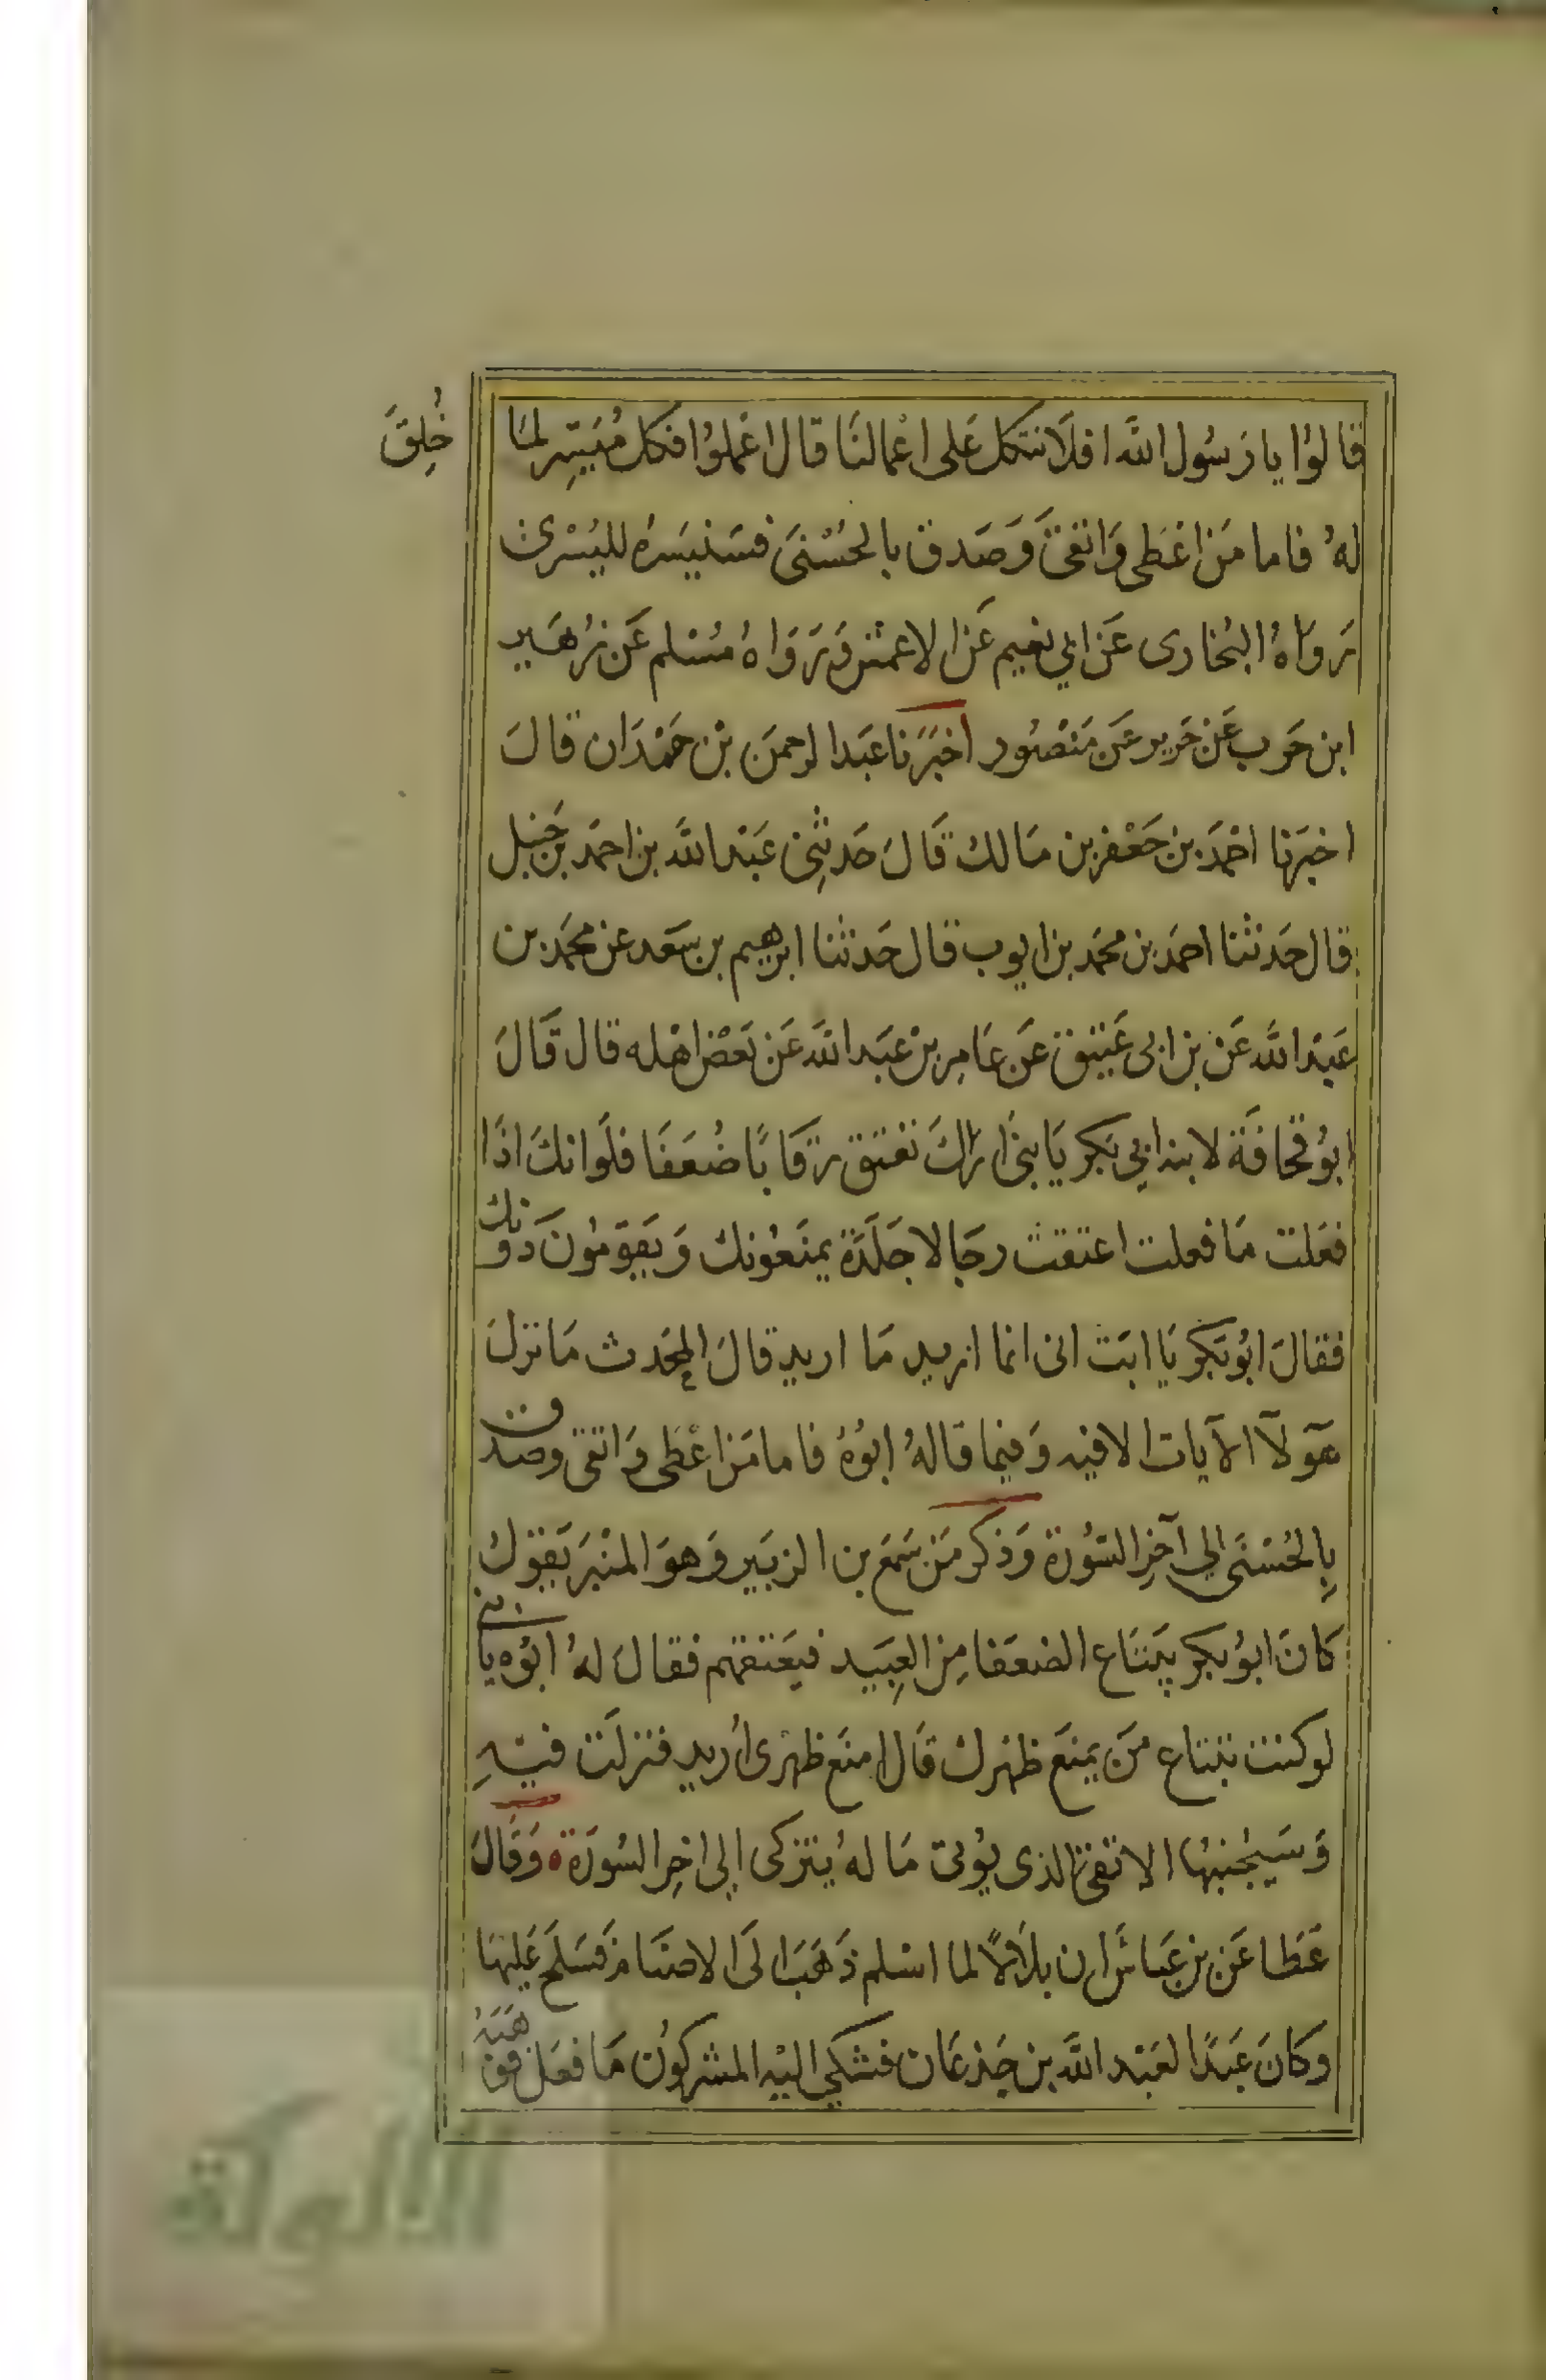 قالوُا يا رَسُول اللَّه افلَا نتكل عَلى اعْمالنَا قال اعْملوُا فكل مُيَسِر لمَا خُلِقَ
لهُ فاما مَن اعْطَى وَاتقىَ وَصَدق بالحُسْنىَ فسَنيسَرهُ لليُسْرىٰ
رَوَاهُ البُخارى عَن ابي نعيم عَن الاعمش وَرَوَاهُ مُسْلم عَن زُهَير
ابن حَرب عَن جَرير عَن مَنْصُور اخبَرَنا عَبدالرحمنَ بْن حَمْدَان قالَ
اخبَرَنا احْمَد بن جَعْفر بن مَالك قَالَ حَدثنِى عَبْد اللَّه بن احمَد بن حَنبل
قال حَدثنا احمَد بن محمَد بن ايوب قال حَدثنا ابرهيم بن سَعد عن محمَد بن
عَبْد اللَّه عَن بن ابى عَتيق عَن عَامِر بن عَبَد اللَّه عَن بَعْض اهْله قال قَالَ
ابوُ قحافَة لابنه ابي بَكر يَا بنىَّ اراكَ تعتق رقَابًا ضُعَفَا فلَوانكَ اذًا
فعَلت مَا فعلت اعتقت رجَالا جَلَدَة يمنَعُونك وَيَقوَمُونَ دَونك
فقالَ ابوُ بَكر يَا ابَت انى انما اريد مَا اريد قالَ المحَدث مَا نزلَ
هَولآ الآيات الا فيه وَفيما قالهُ ابوُهُ فاما مَن اعْطَى وَاتقى وصدق
بِالحُسْنىَ الي آخِر السُورة وَذكر مَن سَمعَ بن الزبَير وَهوَ المنْبَر يَقوُل
كانَ ابوُ بكر يبتَاع الضعَفا مِن العِبَيد فيَعتقهم فقالَ لهُ ابوُه يا بنى
لوكنت تبتاع مَن يمنَع ظهرك قَال امنَع ظهرى اُريد فنزلَت فيْهِ
وَسَيُجنبهُا الاتقىَ الذى يوُتى مَا لهُ يتزكى الى اخِر السُورَة وَقَالَ
عَطا عَن بن عَباسَ ان بلَالًا لما اسْلم ذَهَبَ الىَ الاصنَام فَسَلحَ عَليهَا
وكانَ عَبَدًا لعَبْد اللَّه بن جَذعَان فشكي اليْه المشركوُن مَا فعَل فوَهَبَهُ